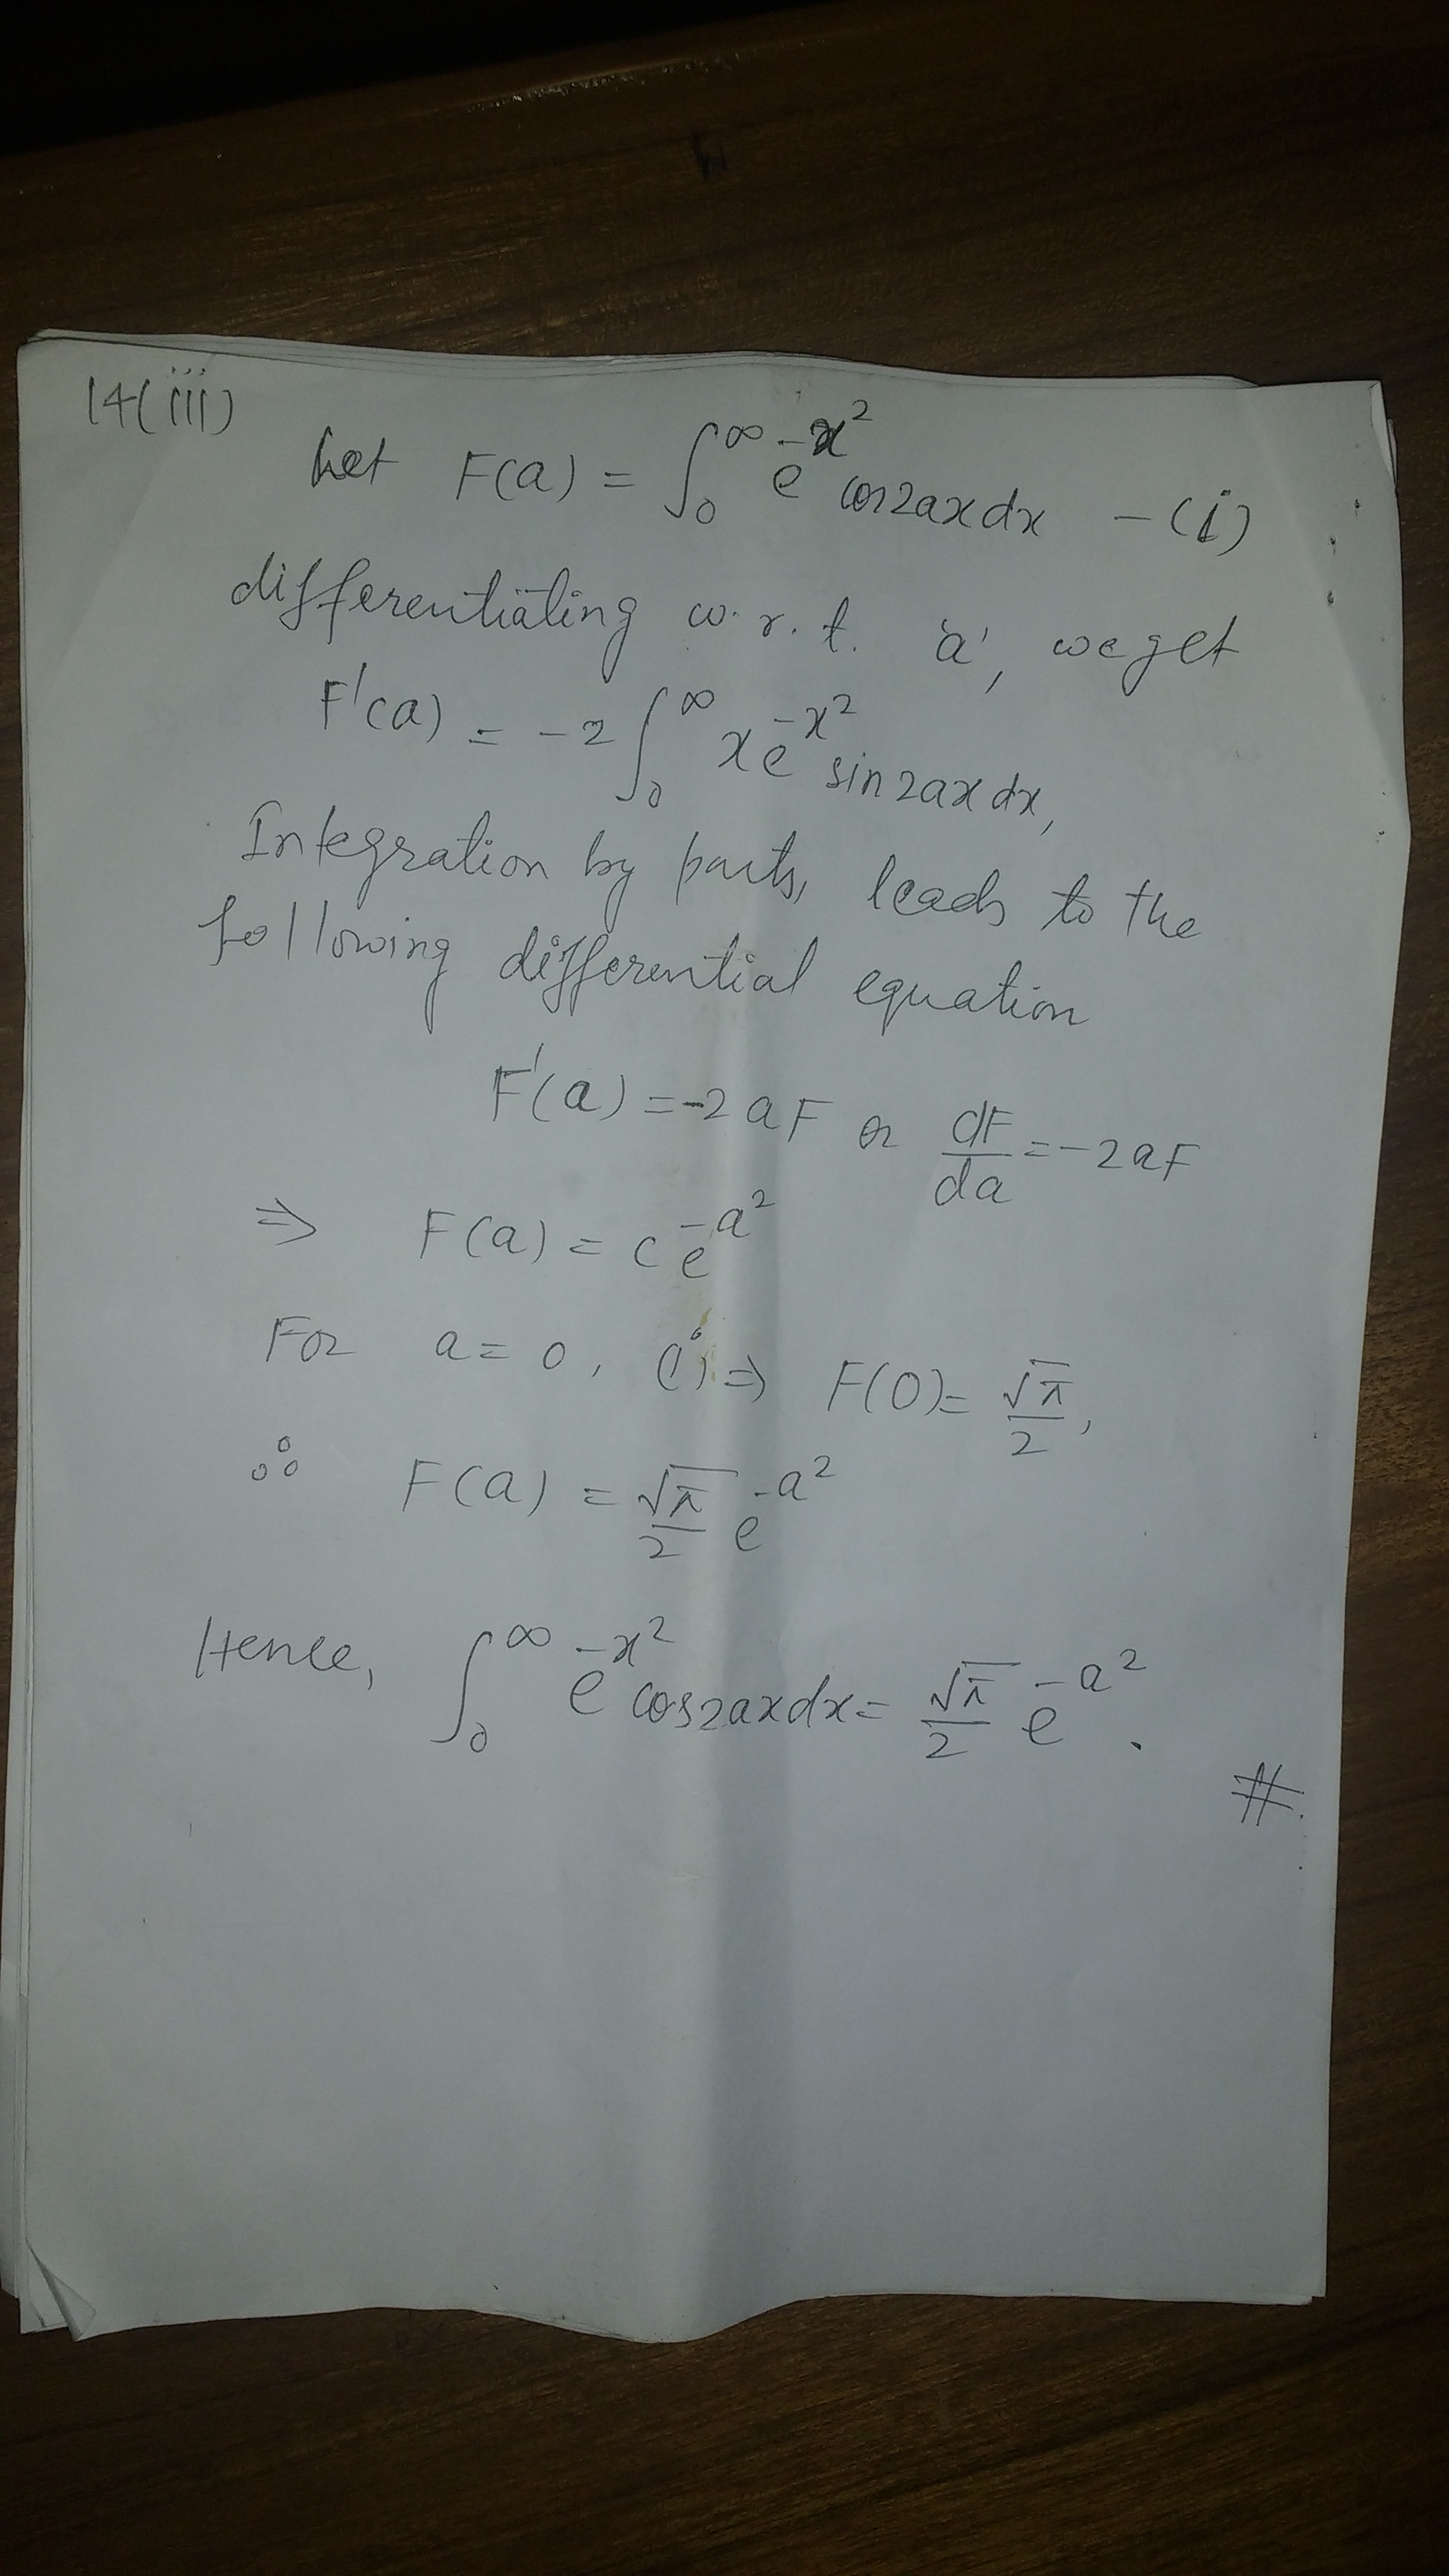 14(iii)
Let F(a) = ∫₀^∞ e^{-x²} cos2axdx - (i)
differentiating w.r.t. 'a', we get
F'(a) = -2∫₀^∞ xe^{-x²} sin2axdx,
Integration by parts, leads to the
following differential equation
F'(a) = -2aF or dF/da = -2aF
⇒ F(a) = ce^{-a²}
For a = 0, (i) ⇒ F(0) = √π/2,
∴ F(a) = √π/2 e^{-a²}
Hence, ∫₀^∞ e^{-x²} cos2axdx = √π/2 e^{-a²}.
#.